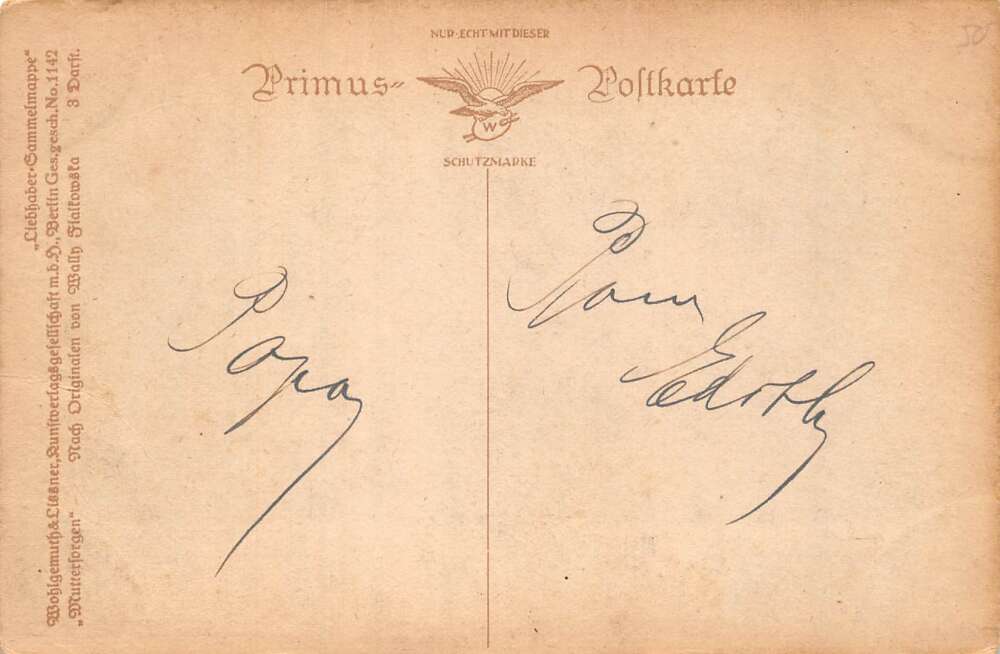 NUR ECHT MIT DIESER
Primus-
Postkarte
W
SCHUTZMARKE
„Liebhaber-Sammelmappe“
Wohlgemuth & Lissner, Kunstverlagsgesellschaft m.b.H., Berlin Ges. gesch. No. 1142
„Muttersorgen“ Nach Originalen von Wally Fialkowska 3 Darst.
Papa
Edith
50